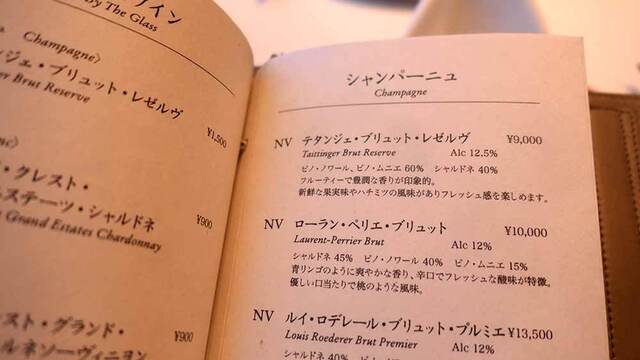 イン
By The Glass
Champagne〉
ンジェ・ブリュット・レゼルヴ
ttinger Brut Reserve
¥1,500
・クレスト・
ステーツ・シャルドネ
Grand Estates Chardonnay
¥900
スト・グランド・
ルネソーヴィニヨン
¥900
シャンパーニュ
Champagne
NV テタンジェ・ブリュット・レゼルヴ ¥9,000
Taittinger Brut Reserve Alc 12.5%
ピノ・ノワール、ピノ・ムニエ 60% シャルドネ 40%
フルーティーで豊潤な香りが印象的。
新鮮な果実味やハチミツの風味がありフレッシュ感を楽しめます。
NV ローラン・ペリエ・ブリュット ¥10,000
Laurent-Perrier Brut Alc 12%
シャルドネ 45% ピノ・ノワール 40% ピノ・ムニエ 15%
青リンゴのように爽やかな香り、辛口でフレッシュな酸味が特徴。
優しい口当たりで桃のような風味。
NV ルイ・ロデレール・ブリュット・プルミエ ¥13,500
Louis Roederer Brut Premier Alc 12%
シャルドネ 40%